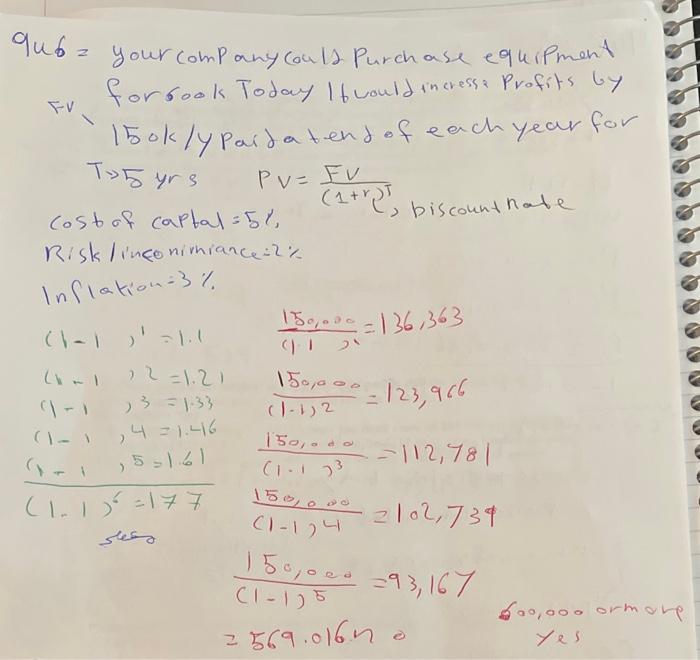 qu6 = your company could Purchase equipment
for 600k Today It would increase Profits by
FV
150k/y Paid at end of each year for
T=>5 yrs PV = FV
(1+r)T
Discount rate
cost of captal = 5%
Risk/inconiniance = 2%
Inflation = 3%
(1-1)1 = 1.1
(1-1)2 = 1.21
(1-1)3 = 1.33
(1-1)4 = 1.416
(1-1)5 = 1.61
(1.1)6 = 177
150,000
(1.1)1 = 136,363
150,000
(1-1)2 = 123,966
150,000
(1-1)3 = 112,781
150,000
(1-1)4 = 102,739
150,000
(1-1)5 = 93,167
= 569.016 no
600,000 or more
Yes